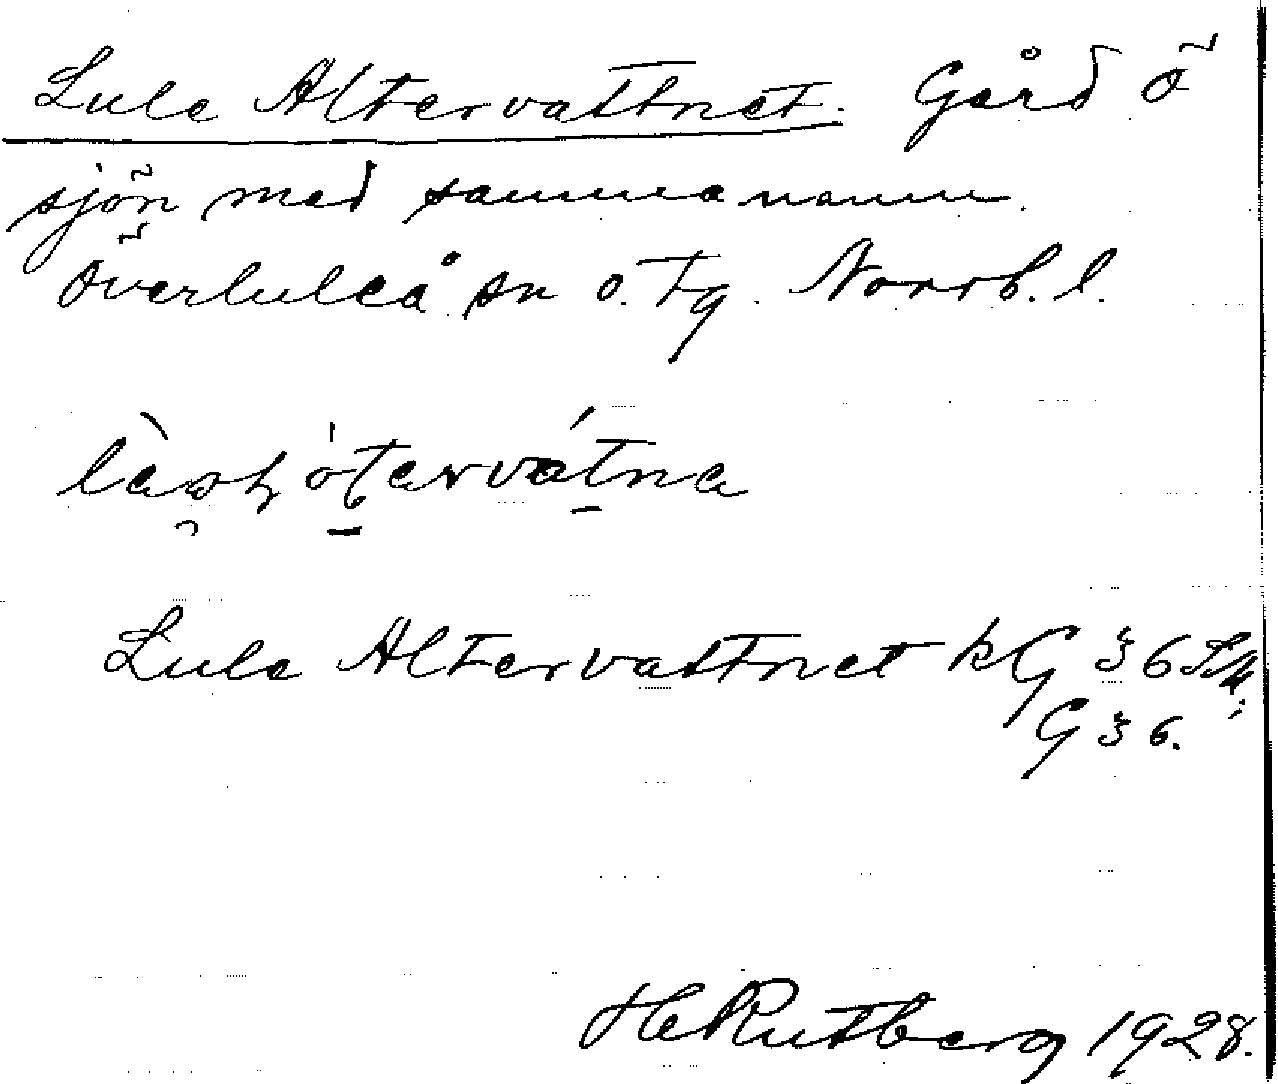 Lule Altervattnet. Gård ö
sjön med samma namn.
Överluleå sn o. tg. Norrb. l.
Lule Altervattnet kG 36
G 36.
H Rutberg 1928.